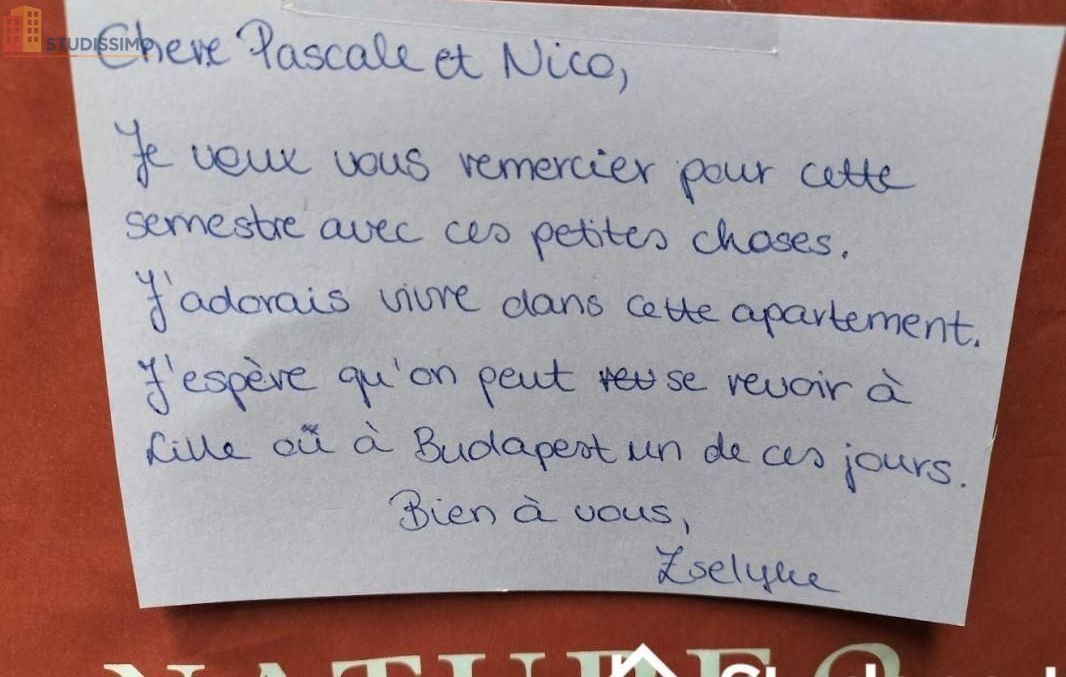 STUDISSIMO
Chere Pascale et Nico,
Je veux vous remercier pour cette
semestre avec ces petites choses.
J'adorais vivre dans cette apartement.
J'espère qu'on peut se revoir à
Lille où à Budapest un de ces jours.
Bien à vous,
Zselyke